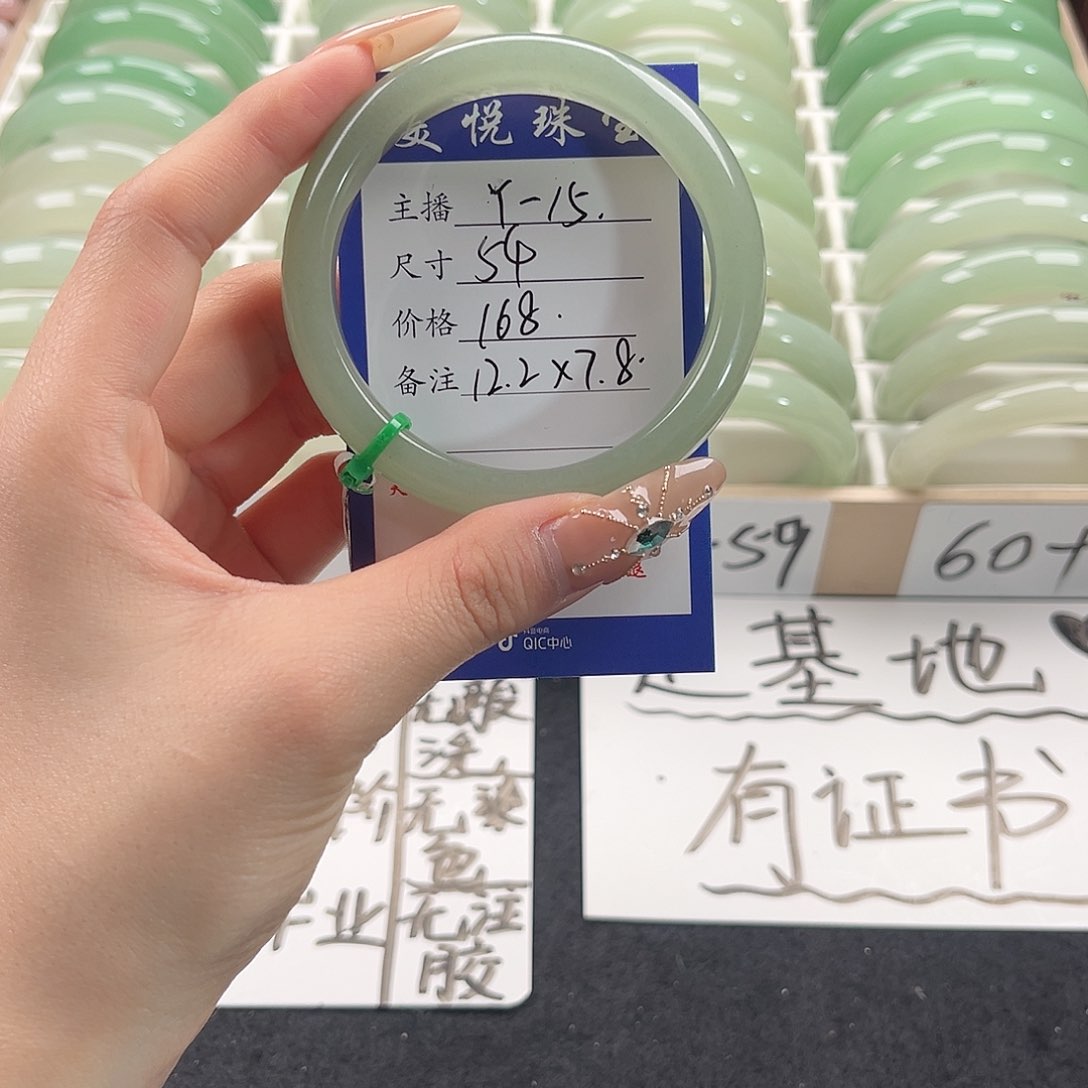 悦珠宝
主播 Y-15.
尺寸 54
价格 168.
备注 12.2×7.8.
抖音电商
QIC中心
-59
60+
基地
有证书
无酸
洗
无染
色
业 无注
胶